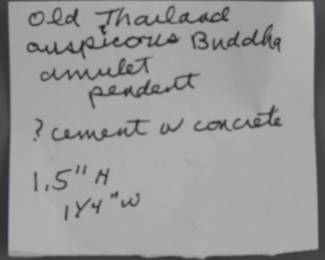 Old Thailand
auspicous Buddha
amulet
pendent
? cement or concrete
1.5" H
1 1/4" W